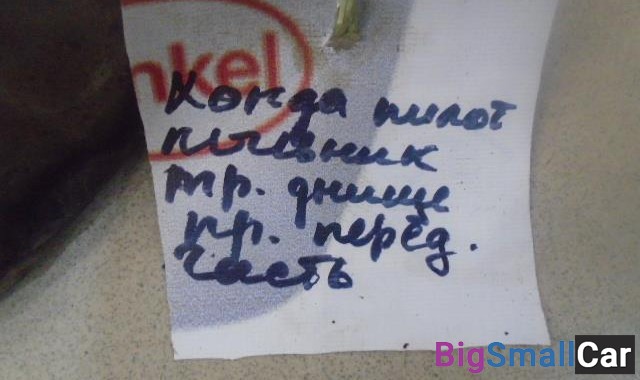 nkel
Хонда пилот
пыльник
тр. днище
пр. перед.
часть
BigSmallCar